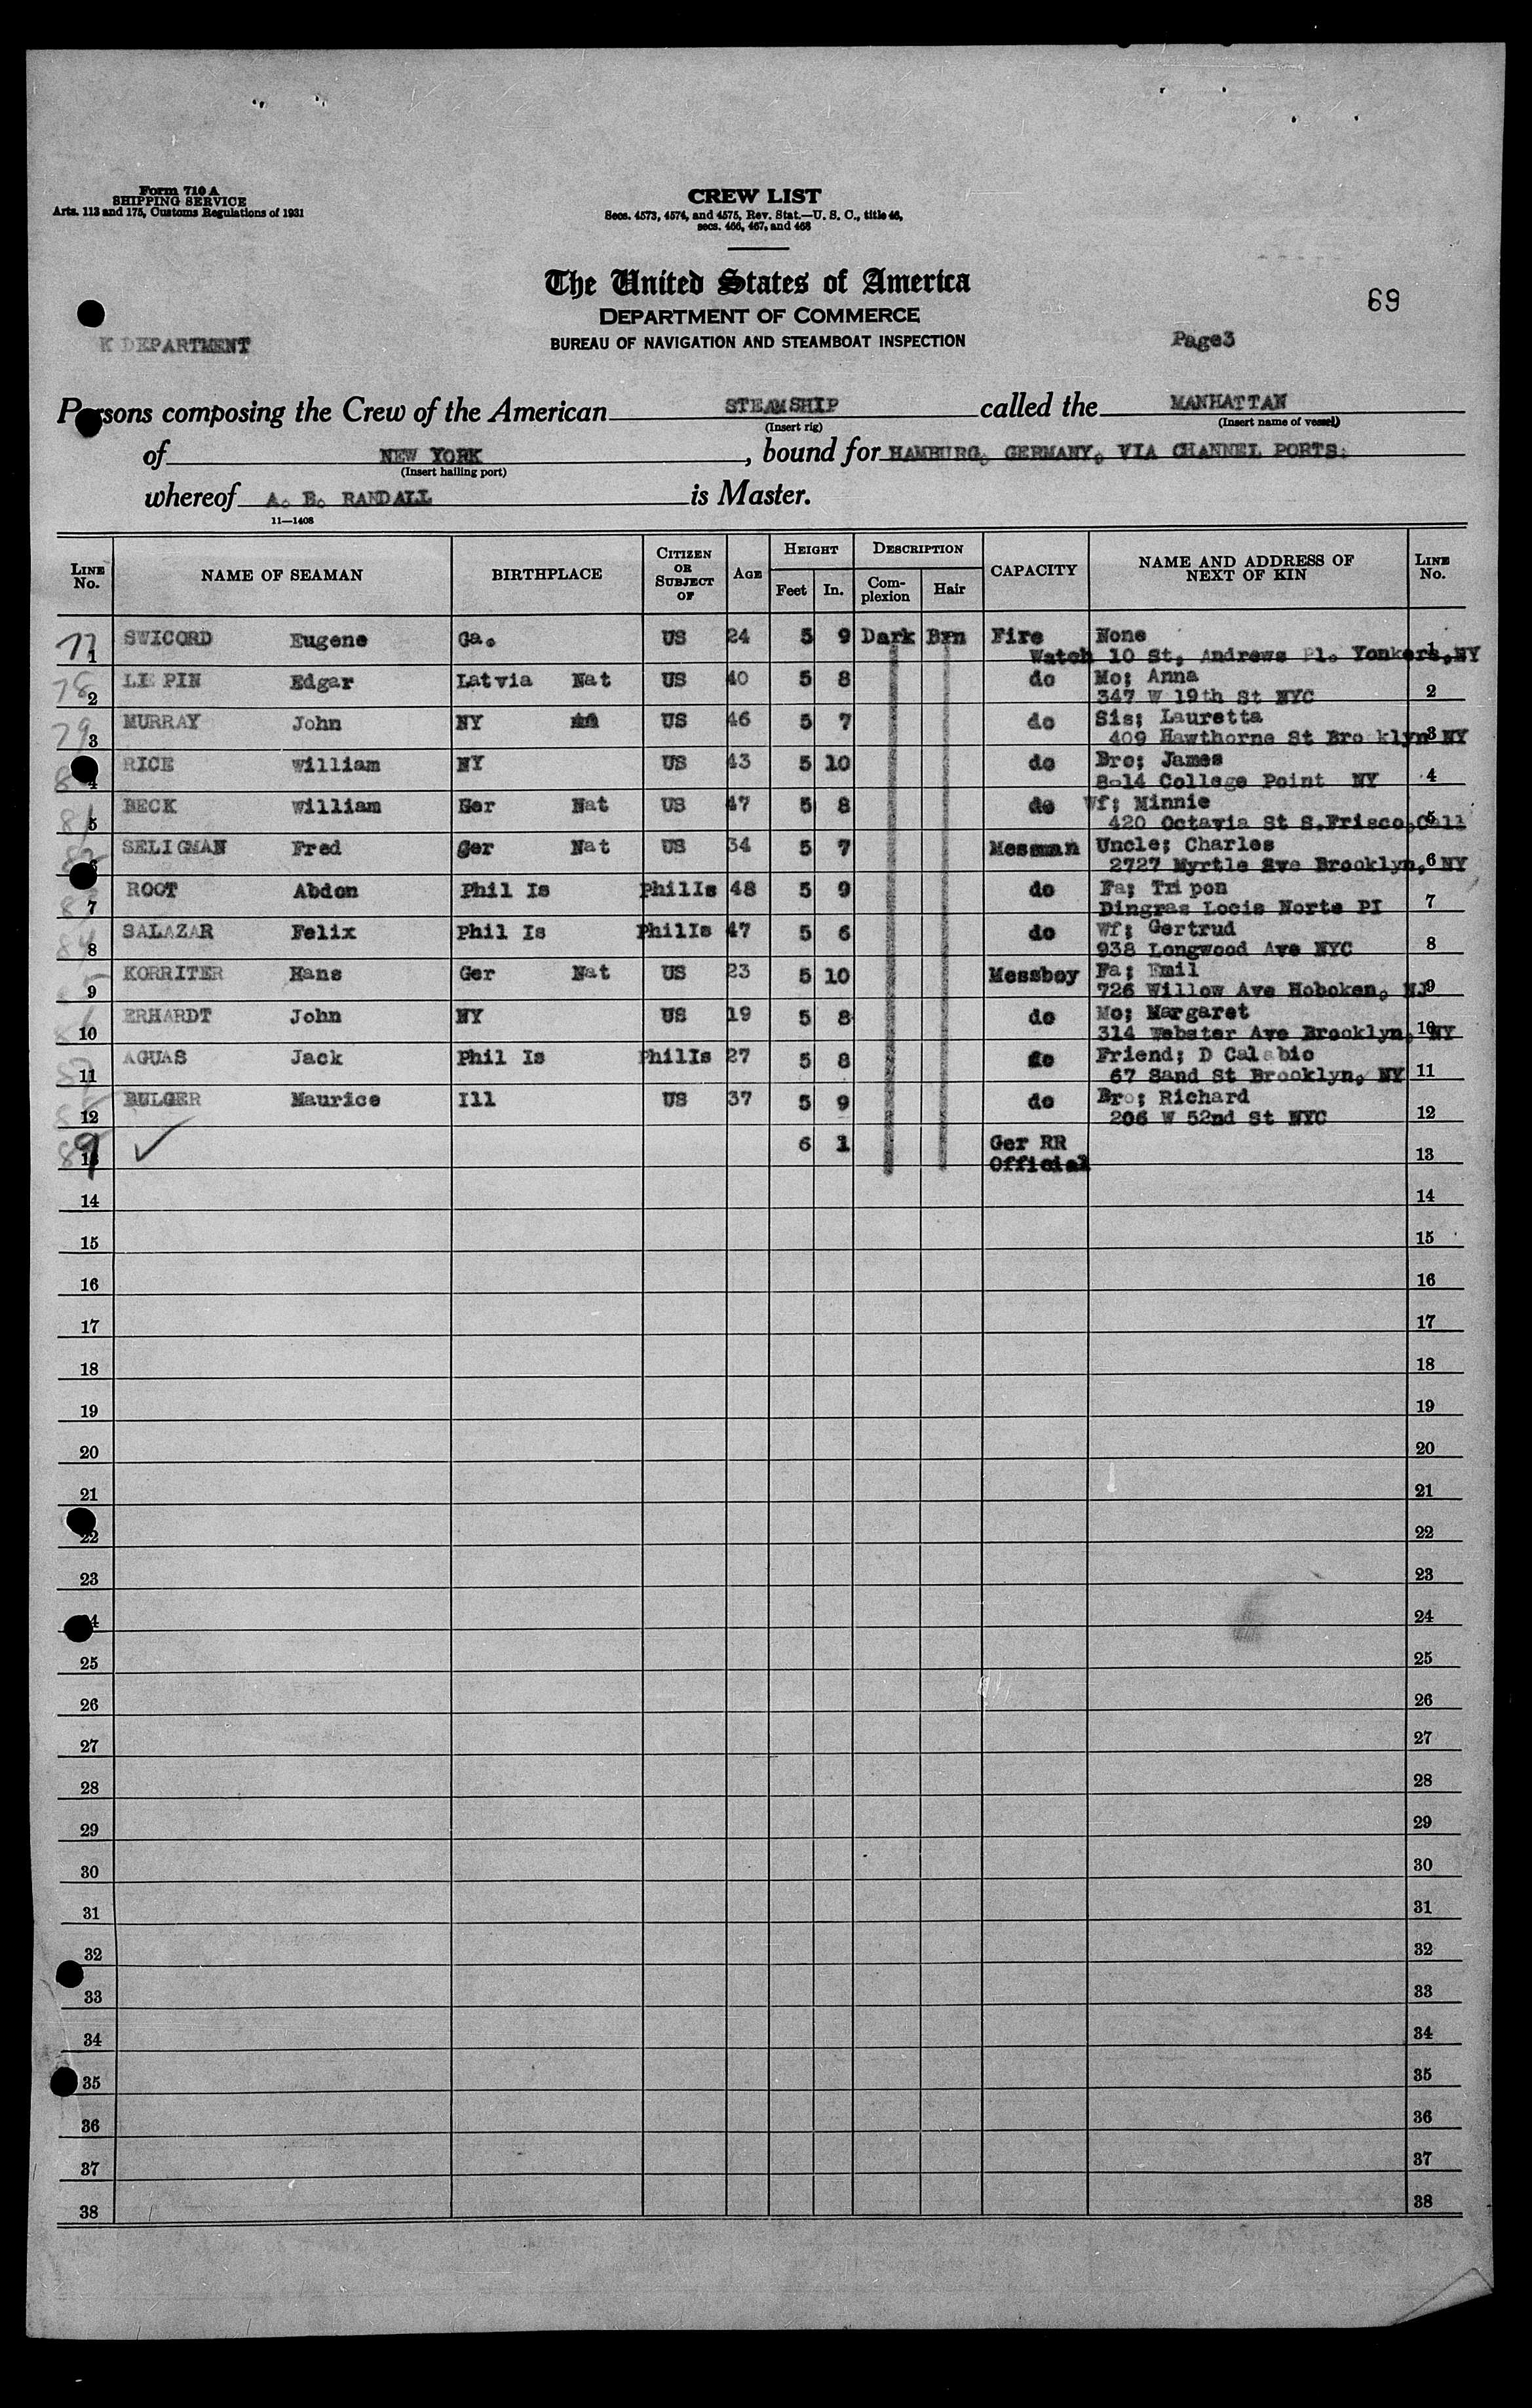 Form 710 A
SHIPPING SERVICE
Arts. 113 and 175, Customs Regulations of 1931
CREW LIST
Secs. 4573, 4574, and 4575, Rev. Stat.—U. S. C., title 46,
secs. 466, 467, and 468
The United States of America
DEPARTMENT OF COMMERCE
BUREAU OF NAVIGATION AND STEAMBOAT INSPECTION
69
K DEPARTMENT
Page3
Persons composing the Crew of the American STEAMSHIP called the MANHATTAN
(Insert rig) (Insert name of vessel)
of NEW YORK, bound for HAMBURG, GERMANY, VIA CHANNEL PORTS.
(Insert hailing port)
whereof A. B. RANDALL is Master.
11—1408
LINE No. NAME OF SEAMAN BIRTHPLACE CITIZEN OR SUBJECT OF AGE HEIGHT Feet In. DESCRIPTION Complexion Hair CAPACITY NAME AND ADDRESS OF NEXT OF KIN LINE No.
77 1 SWICORD Eugene Ga. US 24 5 9 Dark Brn Fire None 1
Watch 10 St, Andrews Pl. Yonkers,NY
78 2 LE PIN Edgar Latvia Nat US 40 5 8 do Mo; Anna 2
347 W 19th St NYC
79 3 MURRAY John NY US 46 5 7 do Sis; Lauretta 3
409 Hawthorne St Brooklyn NY
8 4 RICE William NY US 43 5 10 do Bro; James 4
8-14 College Point NY
81 5 BECK William Ger Nat US 47 5 8 do Wf; Minnie 5
420 Octavia St S.Frisco,Call
82 6 SELIGMAN Fred Ger Nat US 34 5 7 Messman Uncle; Charles 6
2727 Myrtle Ave Brooklyn, NY
83 7 ROOT Abdon Phil Is PhilIs 48 5 9 do Fa; Tripon 7
Dingras Locis Norte PI
84 8 SALAZAR Felix Phil Is PhilIs 47 5 6 do Wf; Gertrud 8
938 Longwood Ave NYC
85 9 KORRITER Hans Ger Nat US 23 5 10 Messboy Fa; Emil 9
726 Willow Ave Hoboken, NJ
86 10 ERHARDT John NY US 19 5 8 do Mo; Margaret 10
314 Webster Ave Brooklyn, NY
87 11 AGUAS Jack Phil Is PhilIs 27 5 8 do Friend; D Calabio 11
67 Sand St Brooklyn, NY
88 12 BULGER Maurice Ill US 37 5 9 do Bro; Richard 12
206 W 52nd St NYC
89 13 6 1 Ger RR 13
Official
14 14
15 15
16 16
17 17
18 18
19 19
20 20
21 21
22 22
23 23
24 24
25 25
26 26
27 27
28 28
29 29
30 30
31 31
32 32
33 33
34 34
35 35
36 36
37 37
38 38